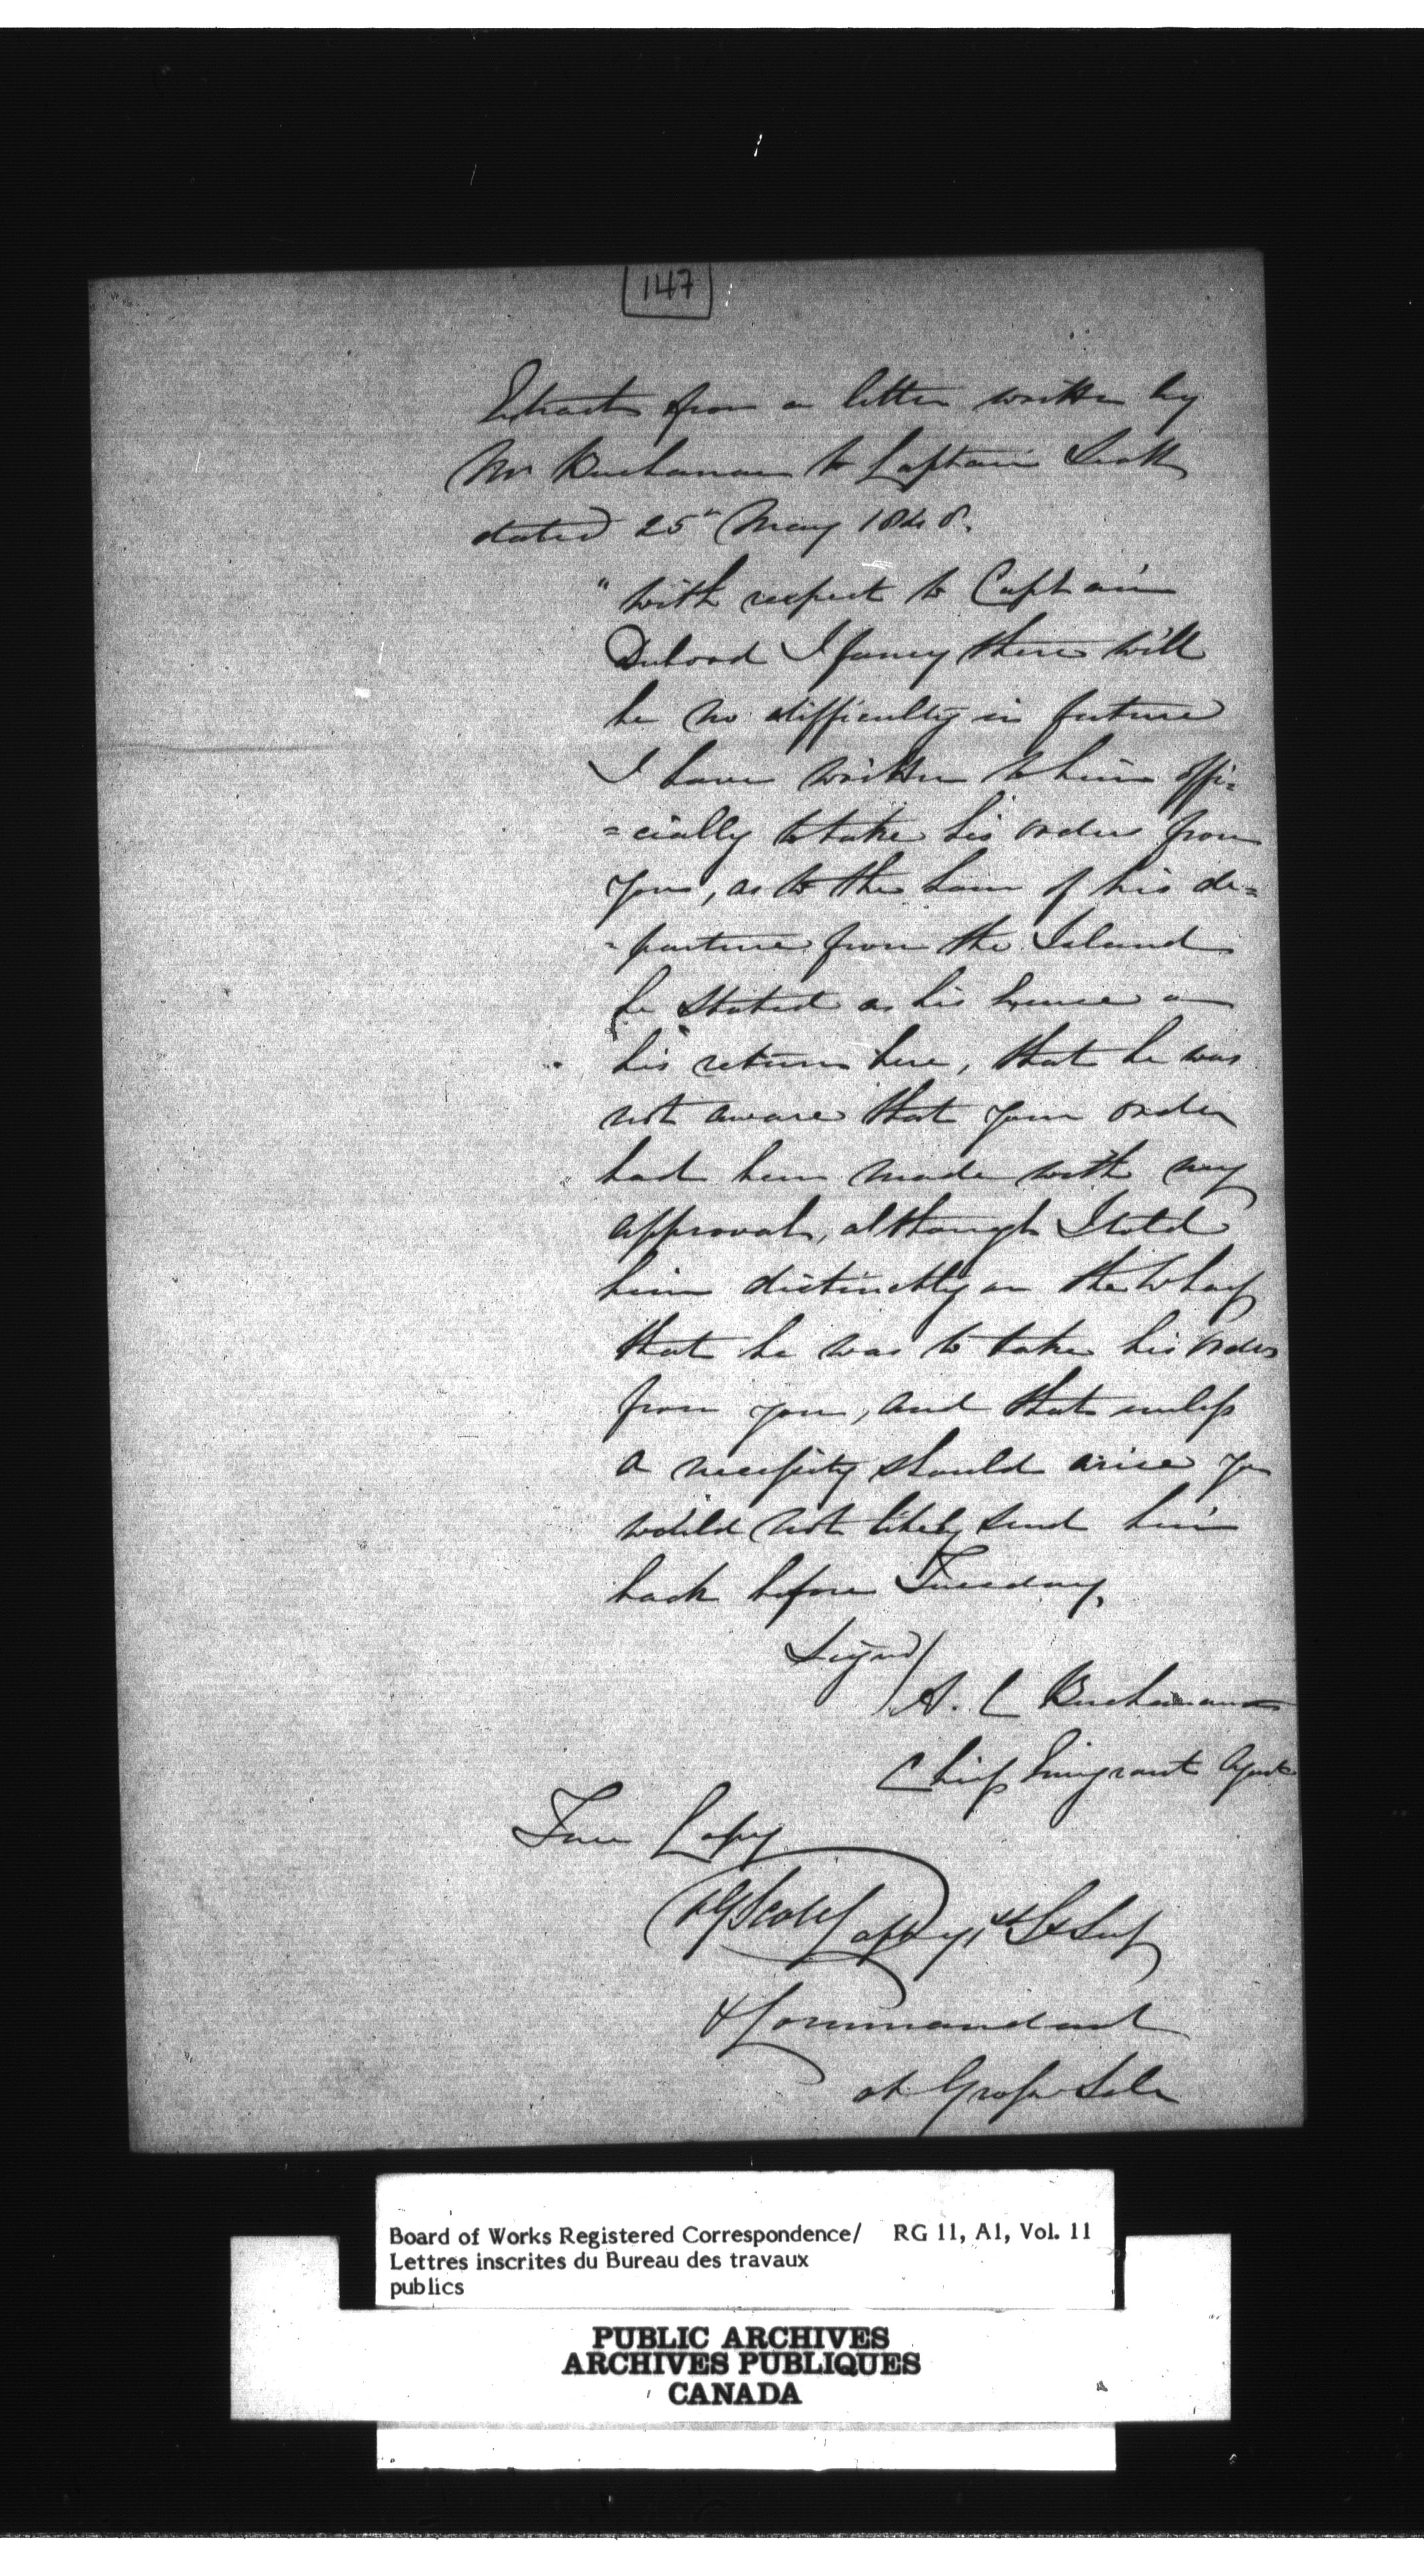 147
Extracts from a letter written by
Mr Buchanan to Captain Scott
dated 25th May 1848.
"with respect to Captain
I fancy there will
be no difficulty in future
I have written to him offi=
=cially to take his orders from
you, as to the hour of his de=
=parture from the Island
he stated as his excuse on
his return here, that he was
not aware that your order
had been made with my
approval, although I told
him distinctly on the Wharf
that he was to take his orders
from you, and that unless
a necessity should arise you
would not likely send him
back before Tuesday,
Signed/
A. C Buchanan
Chief Emigrant Agent
True Copy
Scott Capt
& Commandant
at Grosse Isle
Board of Works Registered Correspondence/ RG 11, A1, Vol. 11
Lettres inscrites du Bureau des travaux
publics
PUBLIC ARCHIVES
ARCHIVES PUBLIQUES
CANADA